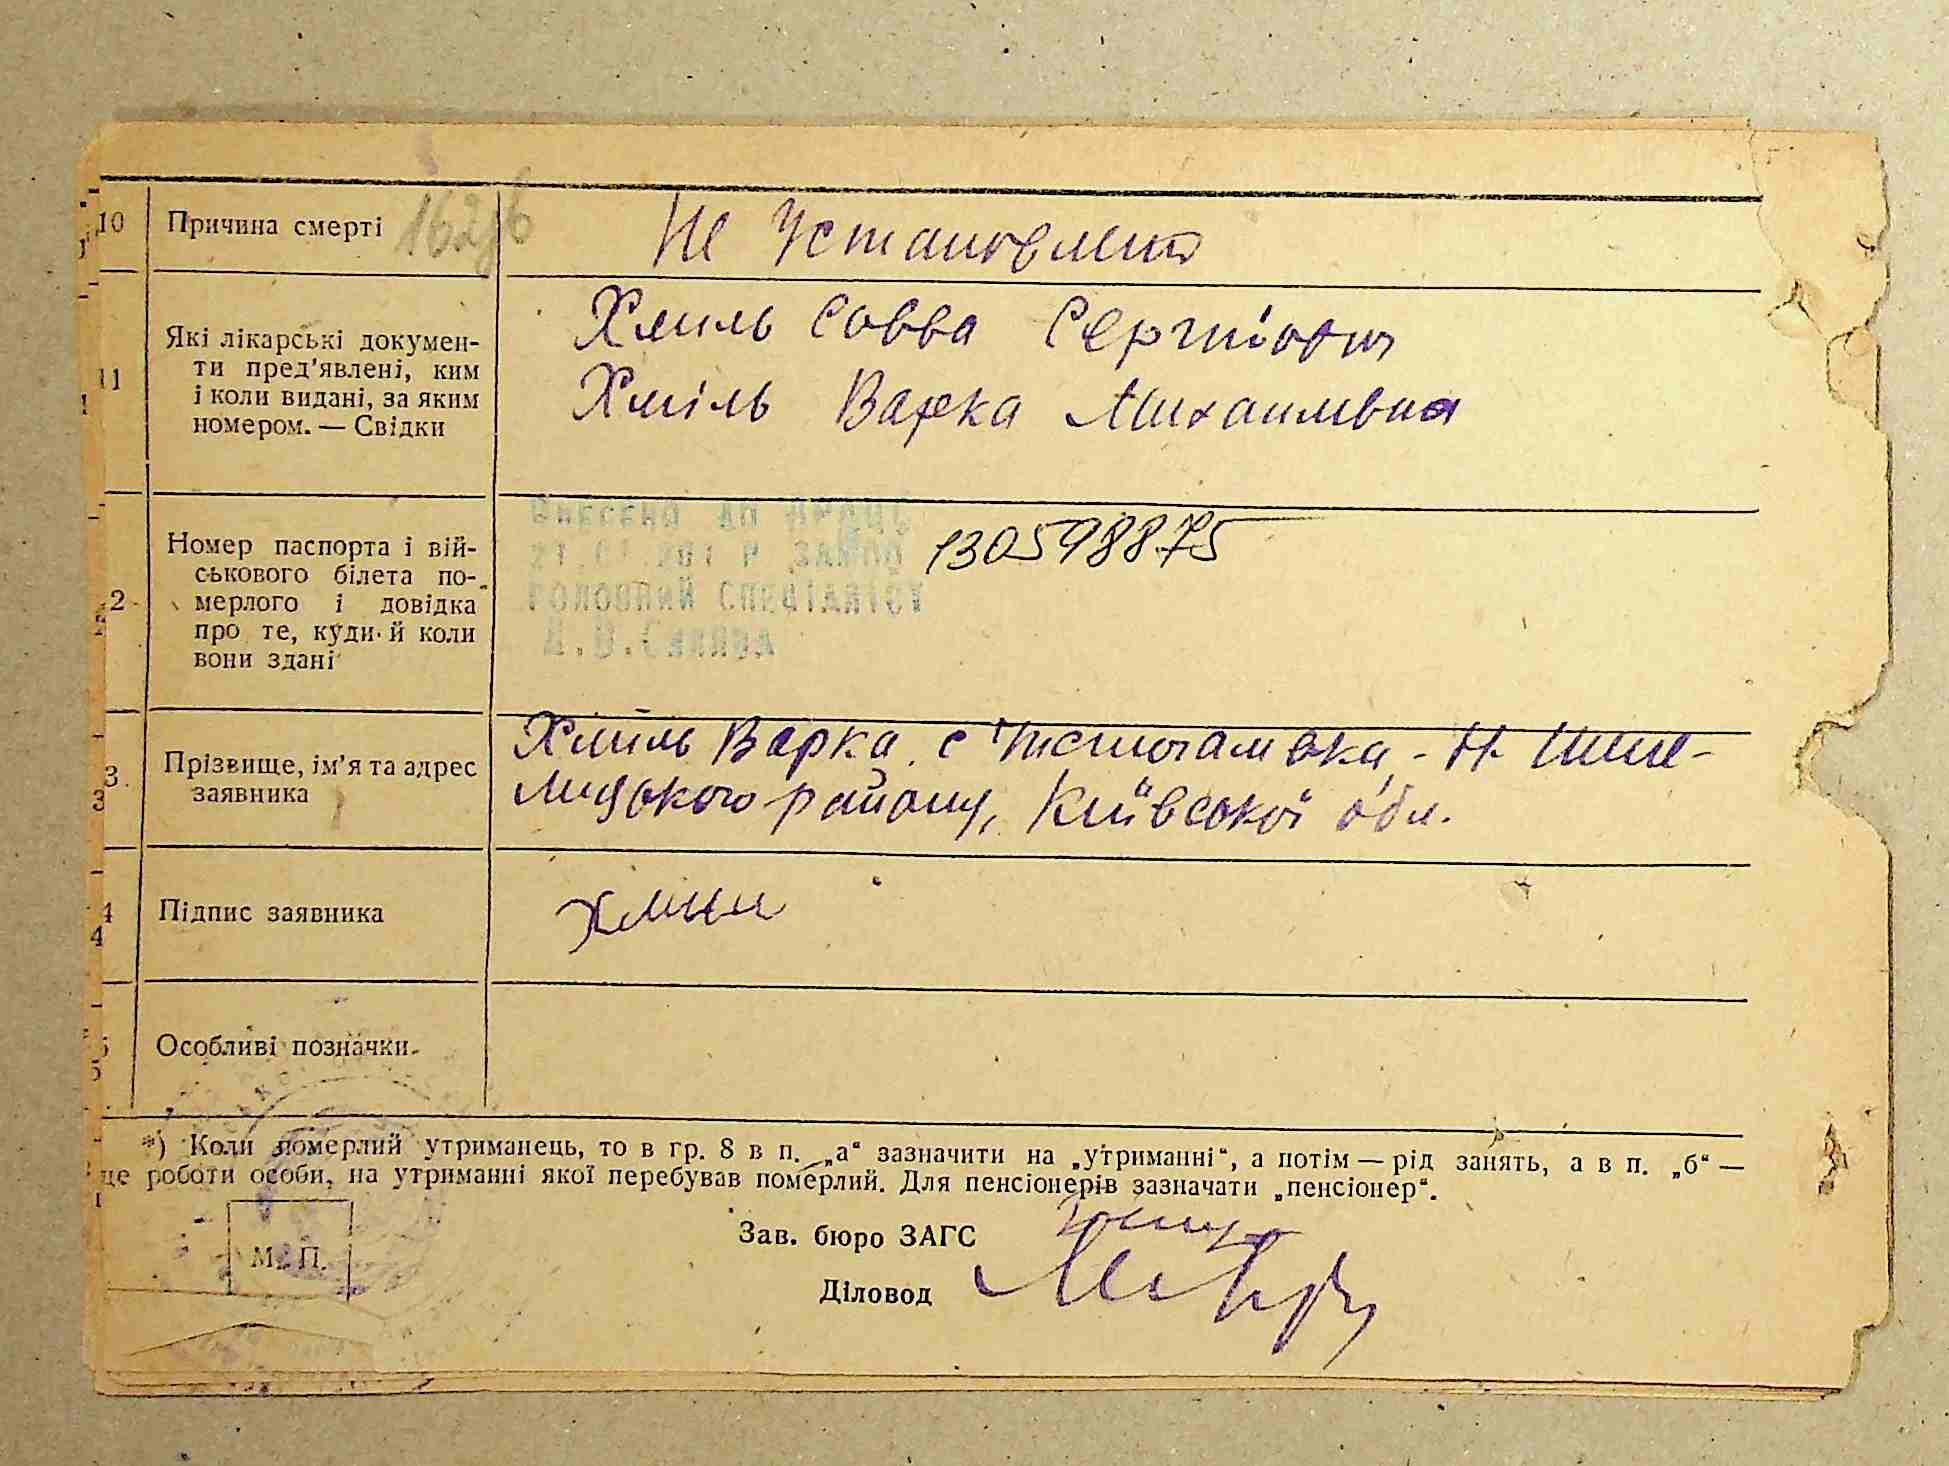 10 Причина смерті Не Установлено
11 Які лікарські докумен-
ти пред'явлені, ким
і коли видані, за яким
номером. — Свідки
Хмиль Совва Сергійович
Хміль Варка Михаиловна
2 Номер паспорта і вій-
ськового білета по-
мерлого і довідка
про те, куди й коли
вони здані
Внесено до ДРАЦС
головний спеціаліст
130598875
3. Прізвище, ім'я та адрес
заявника
Хміль Варка с
району, Київської обл.
4 Підпис заявника
5 Особливі позначки.
*) Коли померлий утриманець, то в гр. 8 в п. „а“ зазначити на „утриманні“, а потім — рід занять, а в п. „б“ —
це роботи особи, на утриманні якої перебував померлий. Для пенсіонерів зазначати „пенсіонер“.
Зав. бюро ЗАГС
М. П.
Діловод